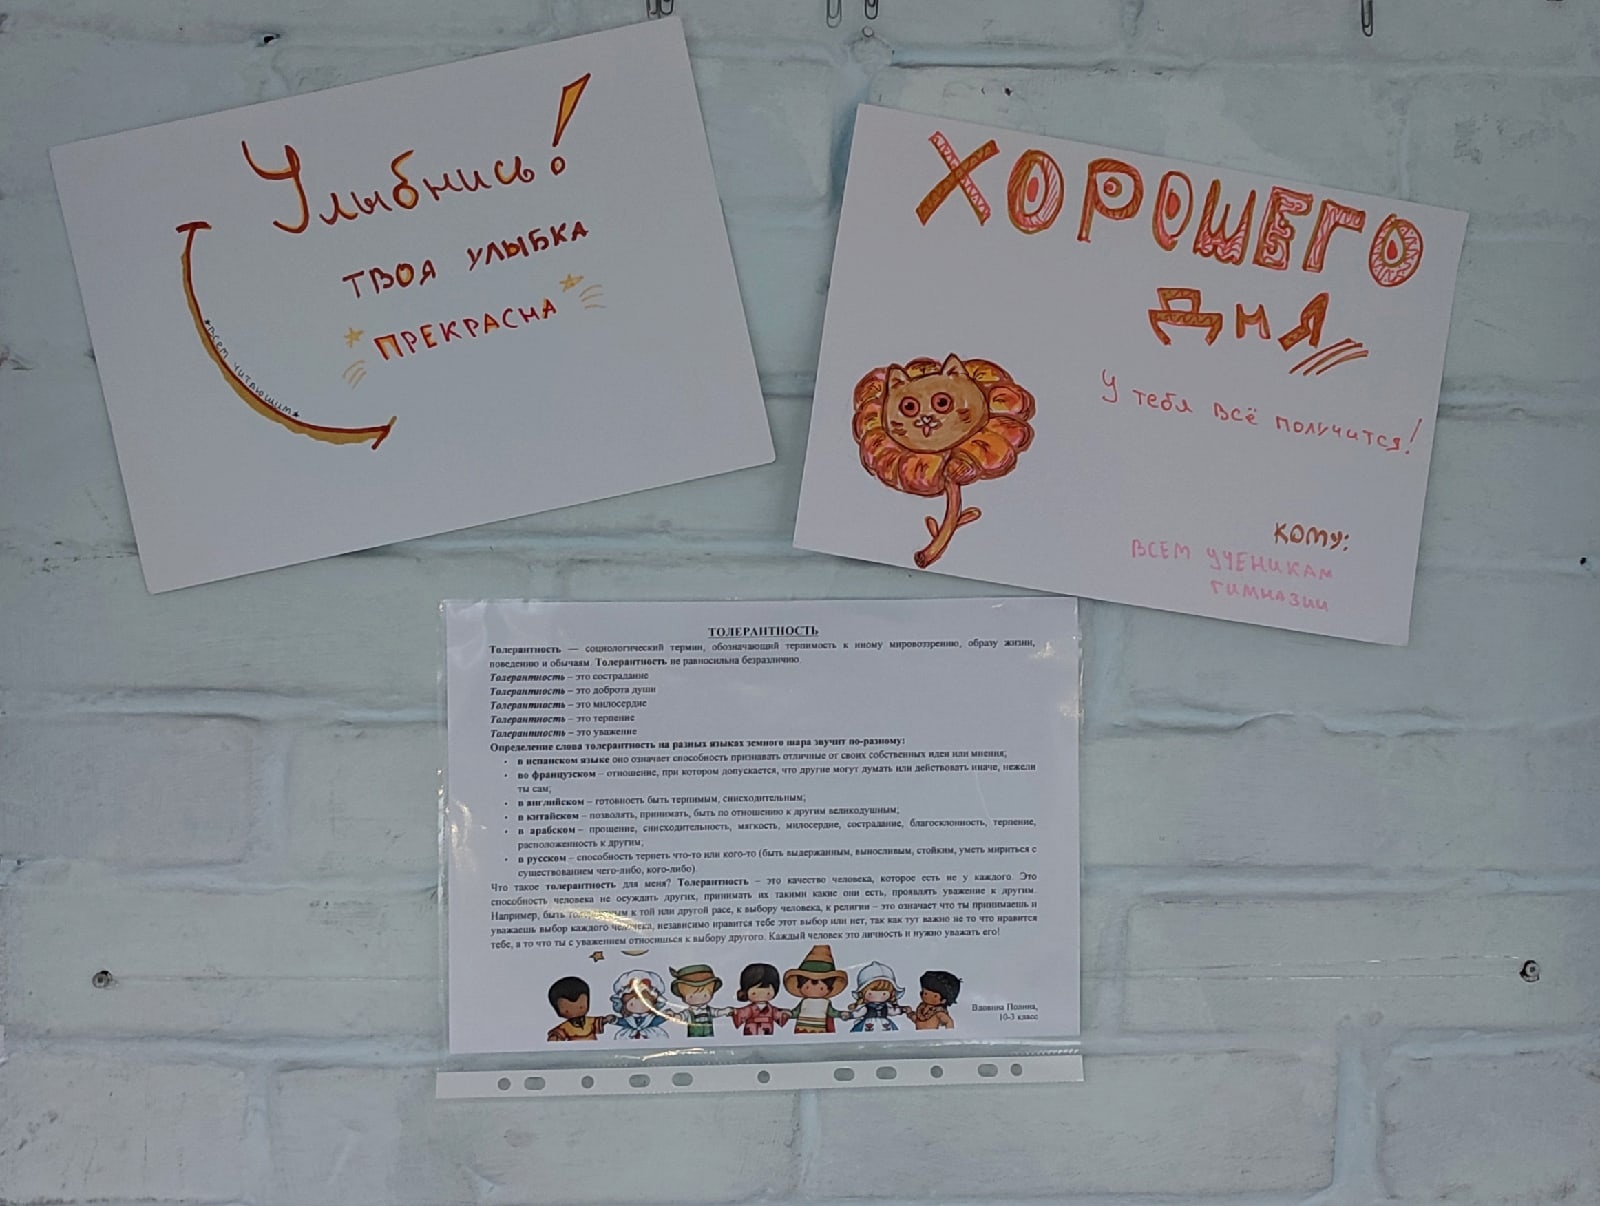 Улыбнись!
ТВОЯ УЛЫБКА
ПРЕКРАСНА
*всем читающим*
ХОРОШЕГО
ДНЯ
У тебя всё получится!
КОМУ:
ВСЕМ УЧЕНИКАМ
ГИМНАЗИИ
ТОЛЕРАНТНОСТЬ
Толерантность — социологический термин, обозначающий терпимость к иному мировоззрению, образу жизни,
поведению и обычаям. Толерантность не равносильна безразличию.
Толерантность – это сострадание
Толерантность – это доброта души
Толерантность – это милосердие
Толерантность – это терпение
Толерантность – это уважение
Определение слова толерантность на разных языках земного шара звучит по-разному:
• в испанском языке оно означает способность признавать отличные от своих собственных идеи или мнения;
• во французском – отношение, при котором допускается, что другие могут думать или действовать иначе, нежели
ты сам;
• в английском – готовность быть терпимым, снисходительным;
• в китайском – позволять, принимать, быть по отношению к другим великодушным;
• в арабском – прощение, снисходительность, мягкость, милосердие, сострадание, благосклонность, терпение,
расположенность к другим;
• в русском – способность терпеть что-то или кого-то (быть выдержанным, выносливым, стойким, уметь мириться с
существованием чего-либо, кого-либо).
Что такое толерантность для меня? Толерантность – это качество человека, которое есть не у каждого. Это
способность человека не осуждать других, принимать их такими какие они есть, проявлять уважение к другим.
Например, быть к той или другой расе, к выбору человека, к религии – это означает что ты принимаешь и
уважаешь выбор каждого человека, независимо нравится тебе этот выбор или нет, так как тут важно не то что нравится
тебе, а то что ты с уважением относишься к выбору другого. Каждый человек это личность и нужно уважать его!
Вдовина Полина,
10-3 класс